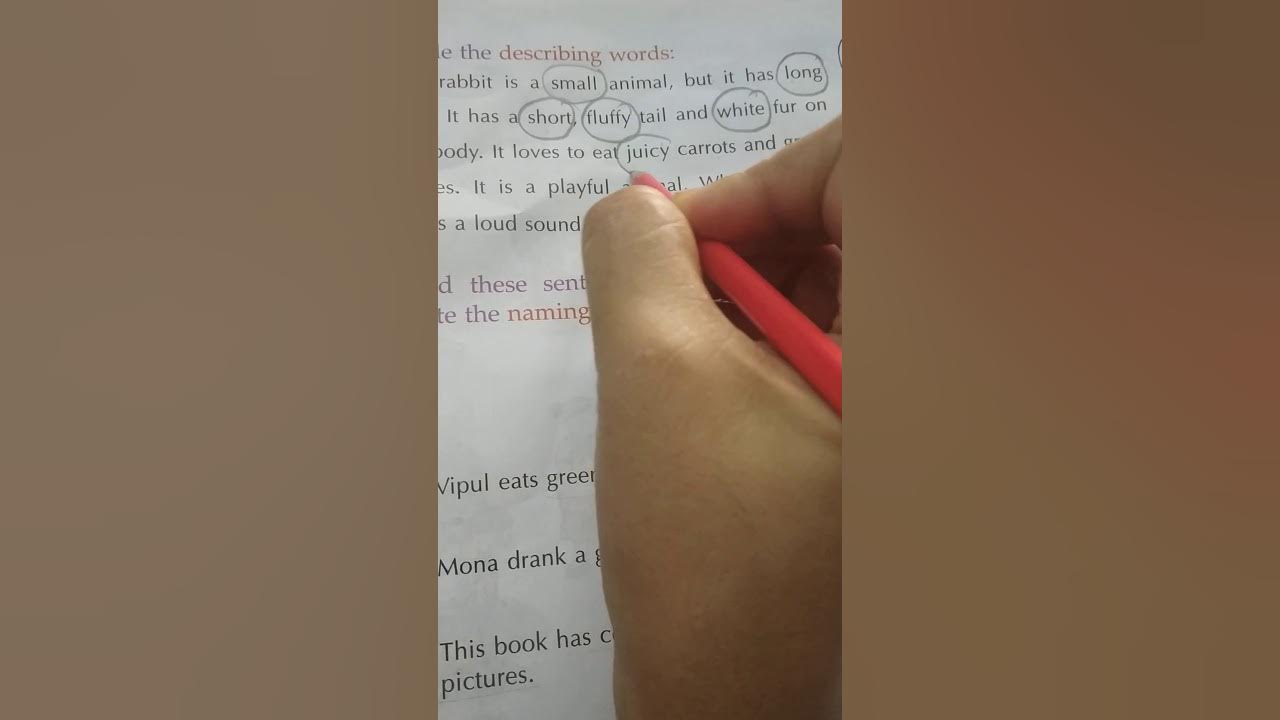 the describing words:
rabbit is a small animal, but it has long
It has a short, fluffy tail and white fur on
body. It loves to eat juicy carrots and
It is a playful
a loud sound
these
the naming
Vipul eats green
Mona drank a
This book has
pictures.